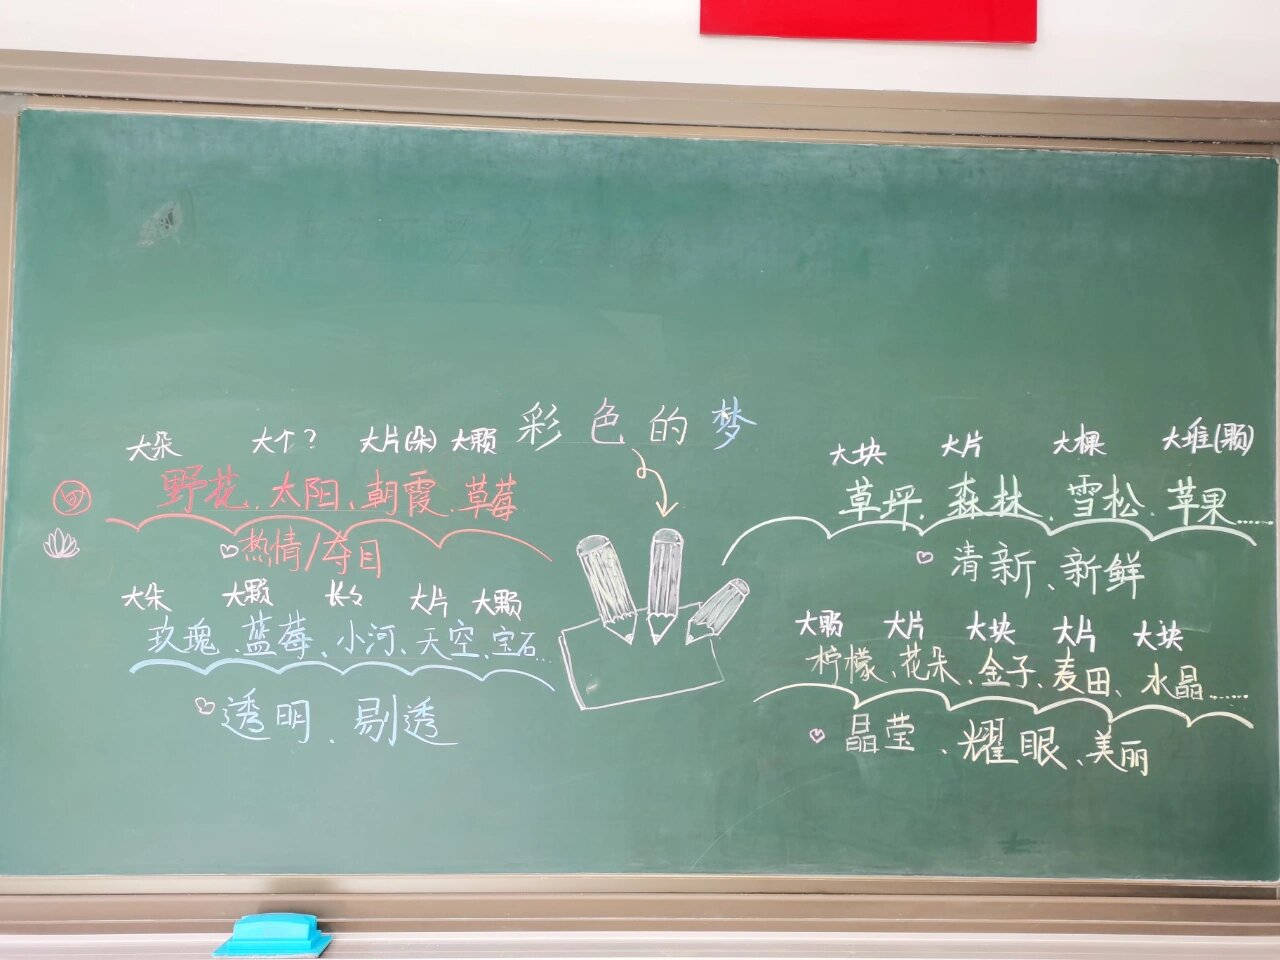 彩色的梦
大朵 大个? 大片(朵) 大颗
野花、太阳、朝霞、草莓
热情/夺目
大朵 大颗 长长 大片 大颗
玫瑰、蓝莓、小河、天空、宝石...
透明、剔透
大块 大片 大棵 大堆(颗)
草坪、森林、雪松、苹果......
清新、新鲜
大颗 大片 大块 大片 大块
柠檬、花朵、金子、麦田、水晶......
晶莹、耀眼、美丽